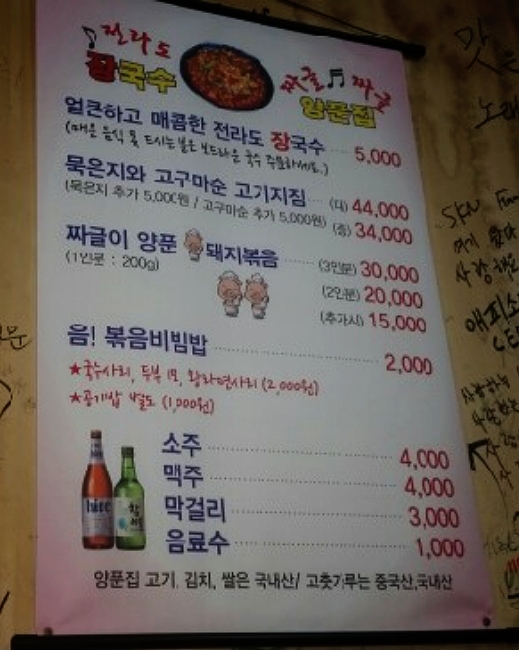 전라도
장국수
짜글 짜글
양푼집
얼큰하고 매콤한 전라도 장국수 5,000
(매운 음식 못 드시는분은 보드라운 국수 주문하세요.)
묵은지와 고구마순 고기지짐 (대) 44,000
(묵은지 추가 5,000원 / 고구마순 추가 5,000원) (중) 34,000
짜글이 양푼 돼지볶음 (3인분) 30,000
(1인분 : 200g) (2인분) 20,000
(추가시) 15,000
음! 볶음비빔밥 2,000
★국수사리, 두부 1모, 왕라면사리 (2,000원)
★공기밥 별도 (1,000원)
소주 4,000
맥주 4,000
막걸리 3,000
음료수 1,000
양푼집 고기, 김치, 쌀은 국내산/ 고춧가루는 중국산,국내산
hite
맛
노래
사랑